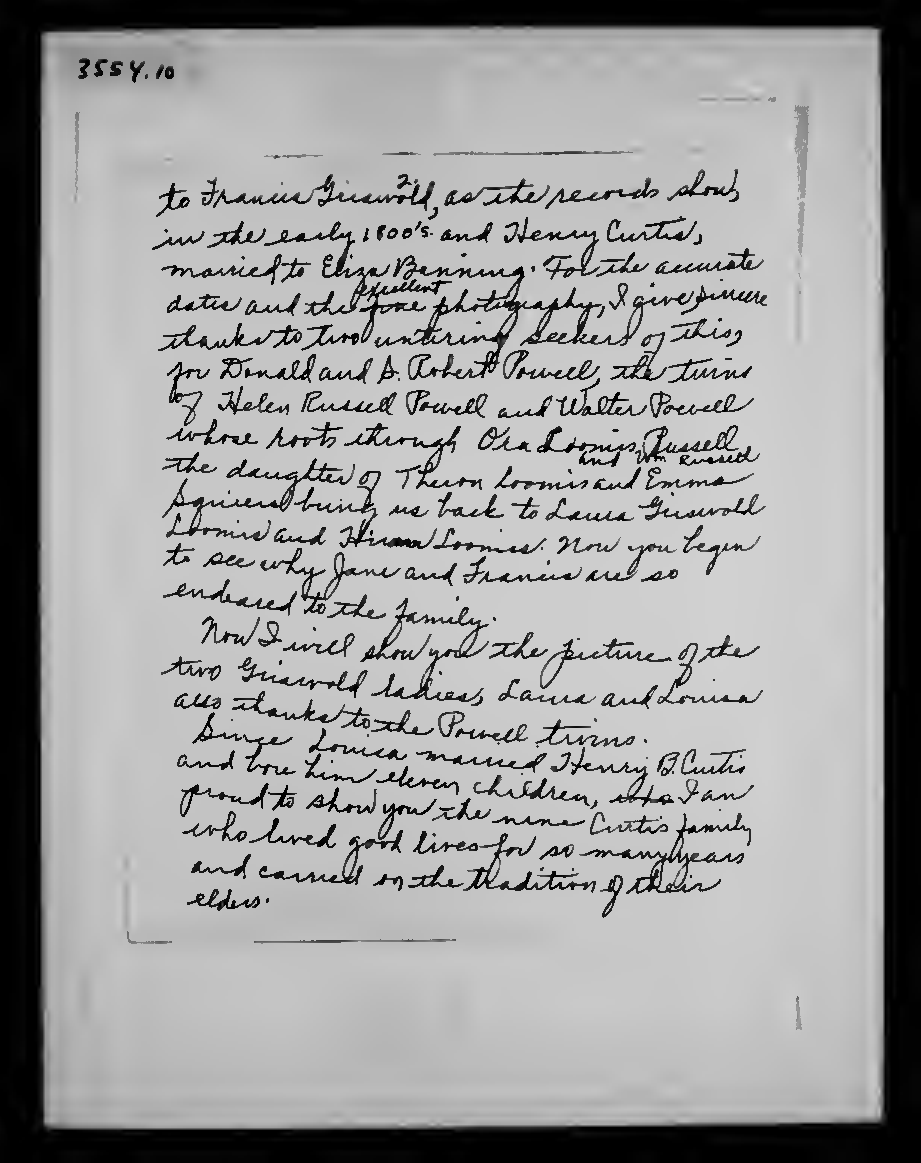 3554.10
2.
to Francis Griswold, as the records show,
in the early 1800's. and Henry Curtis,
married to Eliza Benning. For the accurate
excellent
dates and the fine photography, I give sincere
thanks to two untiring seekers of this,
for Donald and S. Robert Powell, the twins
of Helen Russell Powell and Walter Powell
whose roots through Ora Loomis Russell,
and Wm Russell
the daughter of Theron Loomis and Emma
Squires bring us back to Laura Griswold
Loomis and Hiram Loomis. Now you begin
to see why Jane and Francis are so
endeared to the family.
Now I will show you the picture of the
two Griswold ladies, Laura and Louisa
also thanks to the Powell twins.
Since Louisa married Henry B. Curtis
and bore him eleven children, who I am
proud to show you the nine Curtis family
who lived good lives for so many years
and carried on the tradition of their
elders.